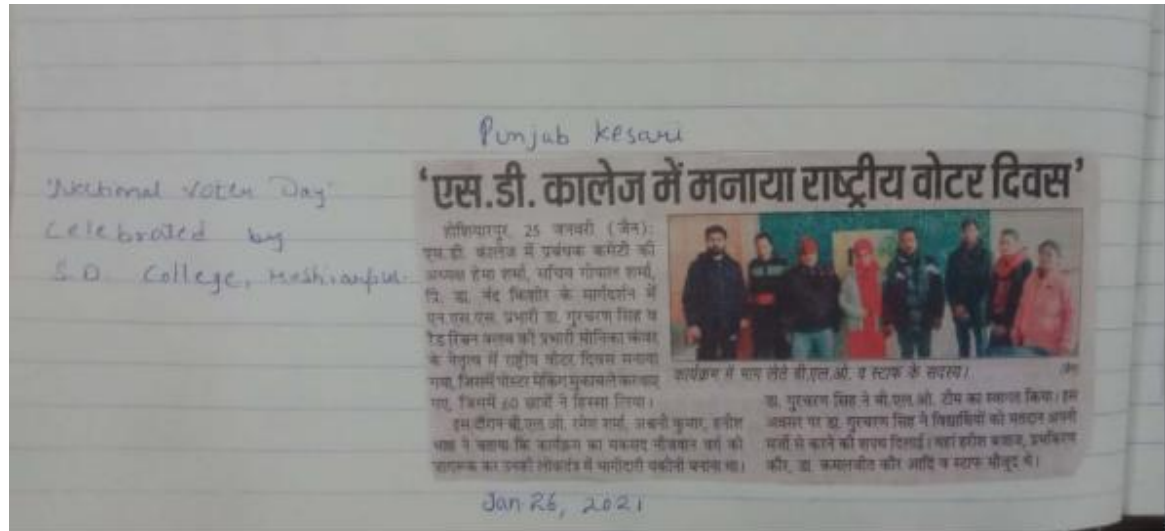 Punjab Kesari
'National Voter Day'
Celebrated by
S.D. College, Hoshiarpur.
'एस.डी. कालेज में मनाया राष्ट्रीय वोटर दिवस'
होशियारपुर, 25 जनवरी (जैन):
एस.डी. कालेज में प्रबंधक कमेटी की
अध्यक्ष हेमा शर्मा, सचिव गोपाल शर्मा,
प्रि. डा. नंद किशोर के मार्गदर्शन में
एन.एस.एस. प्रभारी डा. गुरचरण सिंह व
रैड रिबन क्लब की प्रभारी मोनिका कंवर
के नेतृत्व में राष्ट्रीय वोटर दिवस मनाया
गया, जिसमें पोस्टर मेकिंग मुकाबले करवाए
गए, जिसमें 60 छात्रों ने हिस्सा लिया।
इस दौरान बी.एल.ओ. रमेश शर्मा, अश्वनी कुमार, हनीश
ने बताया कि कार्यक्रम का मकसद नौजवान वर्ग को
जागरूक कर उनकी लोकतंत्र में भागीदारी यकीनी बनाना था।
कार्यक्रम में भाग लेते बी.एल.ओ. व स्टाफ के सदस्य।
डा. गुरचरण सिंह ने बी.एल.ओ. टीम का स्वागत किया। इस
अवसर पर डा. गुरचरण सिंह ने विद्यार्थियों को मतदान अपनी
मर्जी से करने की शपथ दिलाई। यहां हरीश बजाज, प्रभकिरण
कौर, डा. कमलजीत कौर आदि व स्टाफ मौजूद थे।
Jan 26, 2021